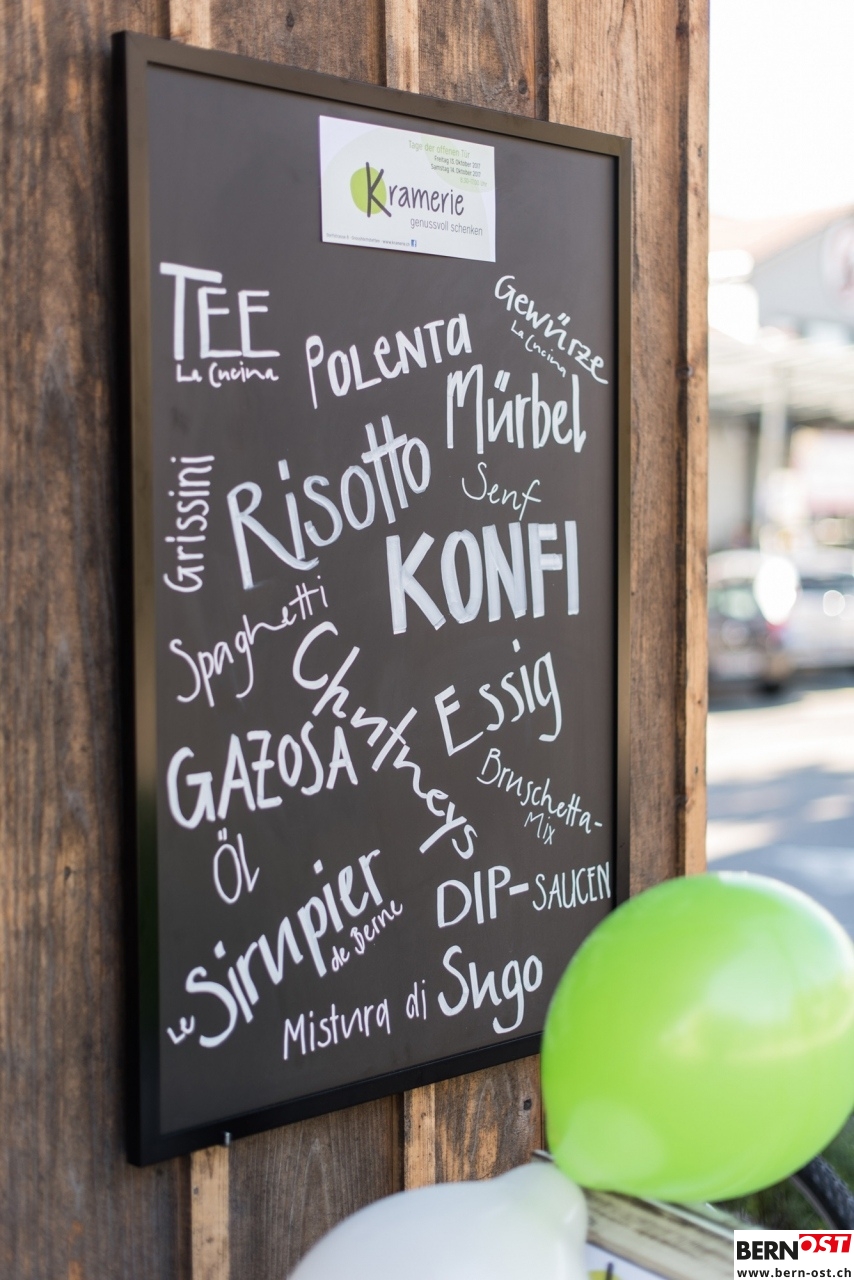 Tage der offenen Tür
Freitag 13. Oktober 2017
Samstag 14. Oktober 2017
Kramerie
genussvoll schenken
TEE
La Cucina
POLENTA
Gewürze
La Cucina
Mürbel
Grissini
Risotto
Senf
KONFI
Spaghetti
Chutneys
Essig
GAZOSA
Bruschetta-
Mix
ÖL
DIP-SAUCEN
Le Sirupier
de Berne
Mistura di Sugo
BERNOST
www.bern-ost.ch